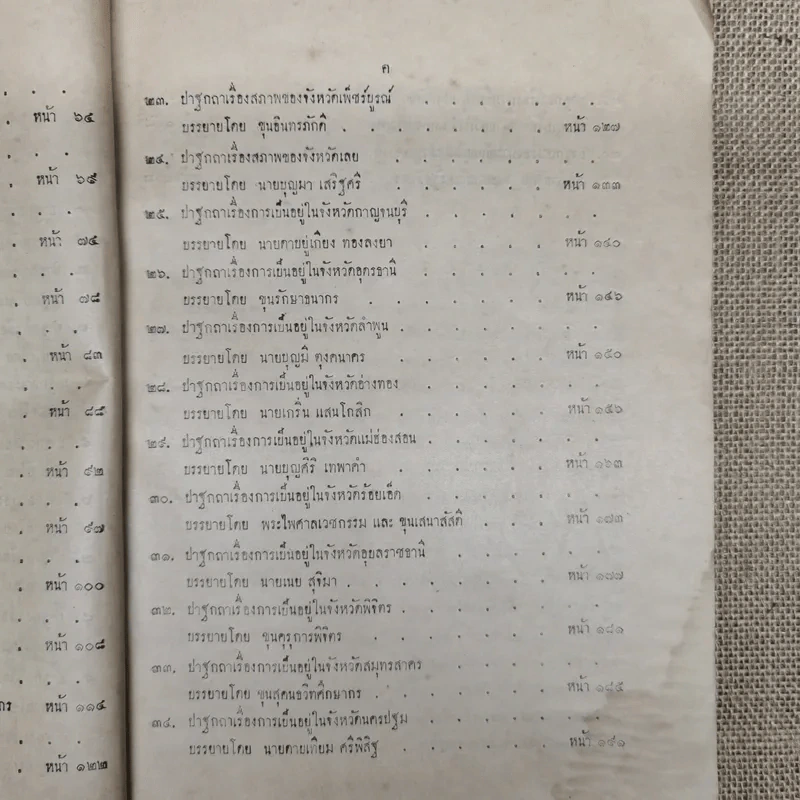 หน้า ๖๔
หน้า ๖๙
หน้า ๗๕
หน้า ๗๘
หน้า ๘๓
หน้า ๘๘
หน้า ๙๒
หน้า ๙๗
หน้า ๑๐๐
หน้า ๑๐๘
กร หน้า ๑๑๔
หน้า ๑๒๒
ค
๒๓. ปาฐกถาเรื่องสภาพของจังหวัดเพ็ชร์บูรณ์ . . . . . . .
บรรยายโดย ขุนอินทรภักดี . . . . . . หน้า ๑๒๗
๒๔. ปาฐกถาเรื่องสภาพของจังหวัดเลย . . . . . . .
บรรยายโดย นายบุญมา เสริฐศรี . . . . หน้า ๑๓๓
๒๕. ปาฐกถาเรื่องการเป็นอยู่ในจังหวัดกาญจนบุรี . . . . . .
บรรยายโดย นายดาบยู่เกียง ทองลงยา . . . . หน้า ๑๔๐
๒๖. ปาฐกถาเรื่องการเป็นอยู่ในจังหวัดอุดรธานี . . . . . .
บรรยายโดย ขุนรักษาธนากร . . . . . หน้า ๑๔๖
๒๗. ปาฐกถาเรื่องการเป็นอยู่ในจังหวัดลำพูน . . . . . . .
บรรยายโดย นายบุญมี ตุงคนาคร . . . . หน้า ๑๕๐
๒๘. ปาฐกถาเรื่องการเป็นอยู่ในจังหวัดอ่างทอง . . . . . .
บรรยายโดย นายเกริ่น แสนโกสิก . . . . หน้า ๑๕๖
๒๙. ปาฐกถาเรื่องการเป็นอยู่ในจังหวัดแม่ฮ่องสอน . . . . . .
บรรยายโดย นายบุญศิริ เทพาคำ . . . . หน้า ๑๖๓
๓๐. ปาฐกถาเรื่องการเป็นอยู่ในจังหวัดร้อยเอ็ด . . . . . .
บรรยายโดย พระไพศาลเวชกรรม และ ขุนเสนาสัสดี . . . หน้า ๑๗๓
๓๑. ปาฐกถาเรื่องการเป็นอยู่ในจังหวัดอุบลราชธานี . . . . . .
บรรยายโดย นายเนย สุจิมา . . . . . . หน้า ๑๗๗
๓๒. ปาฐกถาเรื่องการเป็นอยู่ในจังหวัดพิจิตร . . . . . . .
บรรยายโดย ขุนคุรุการพิจิตร . . . . . หน้า ๑๘๑
๓๓. ปาฐกถาเรื่องการเป็นอยู่ในจังหวัดสมุทรสาคร . . . . . .
บรรยายโดย ขุนสุคนธวิทศึกษากร . . . . . หน้า ๑๘๕
๓๔. ปาฐกถาเรื่องการเป็นอยู่ในจังหวัดนครปฐม . . . . . .
บรรยายโดย นายดาบเทียม ศิริพิสิฐ . . . . หน้า ๑๙๑